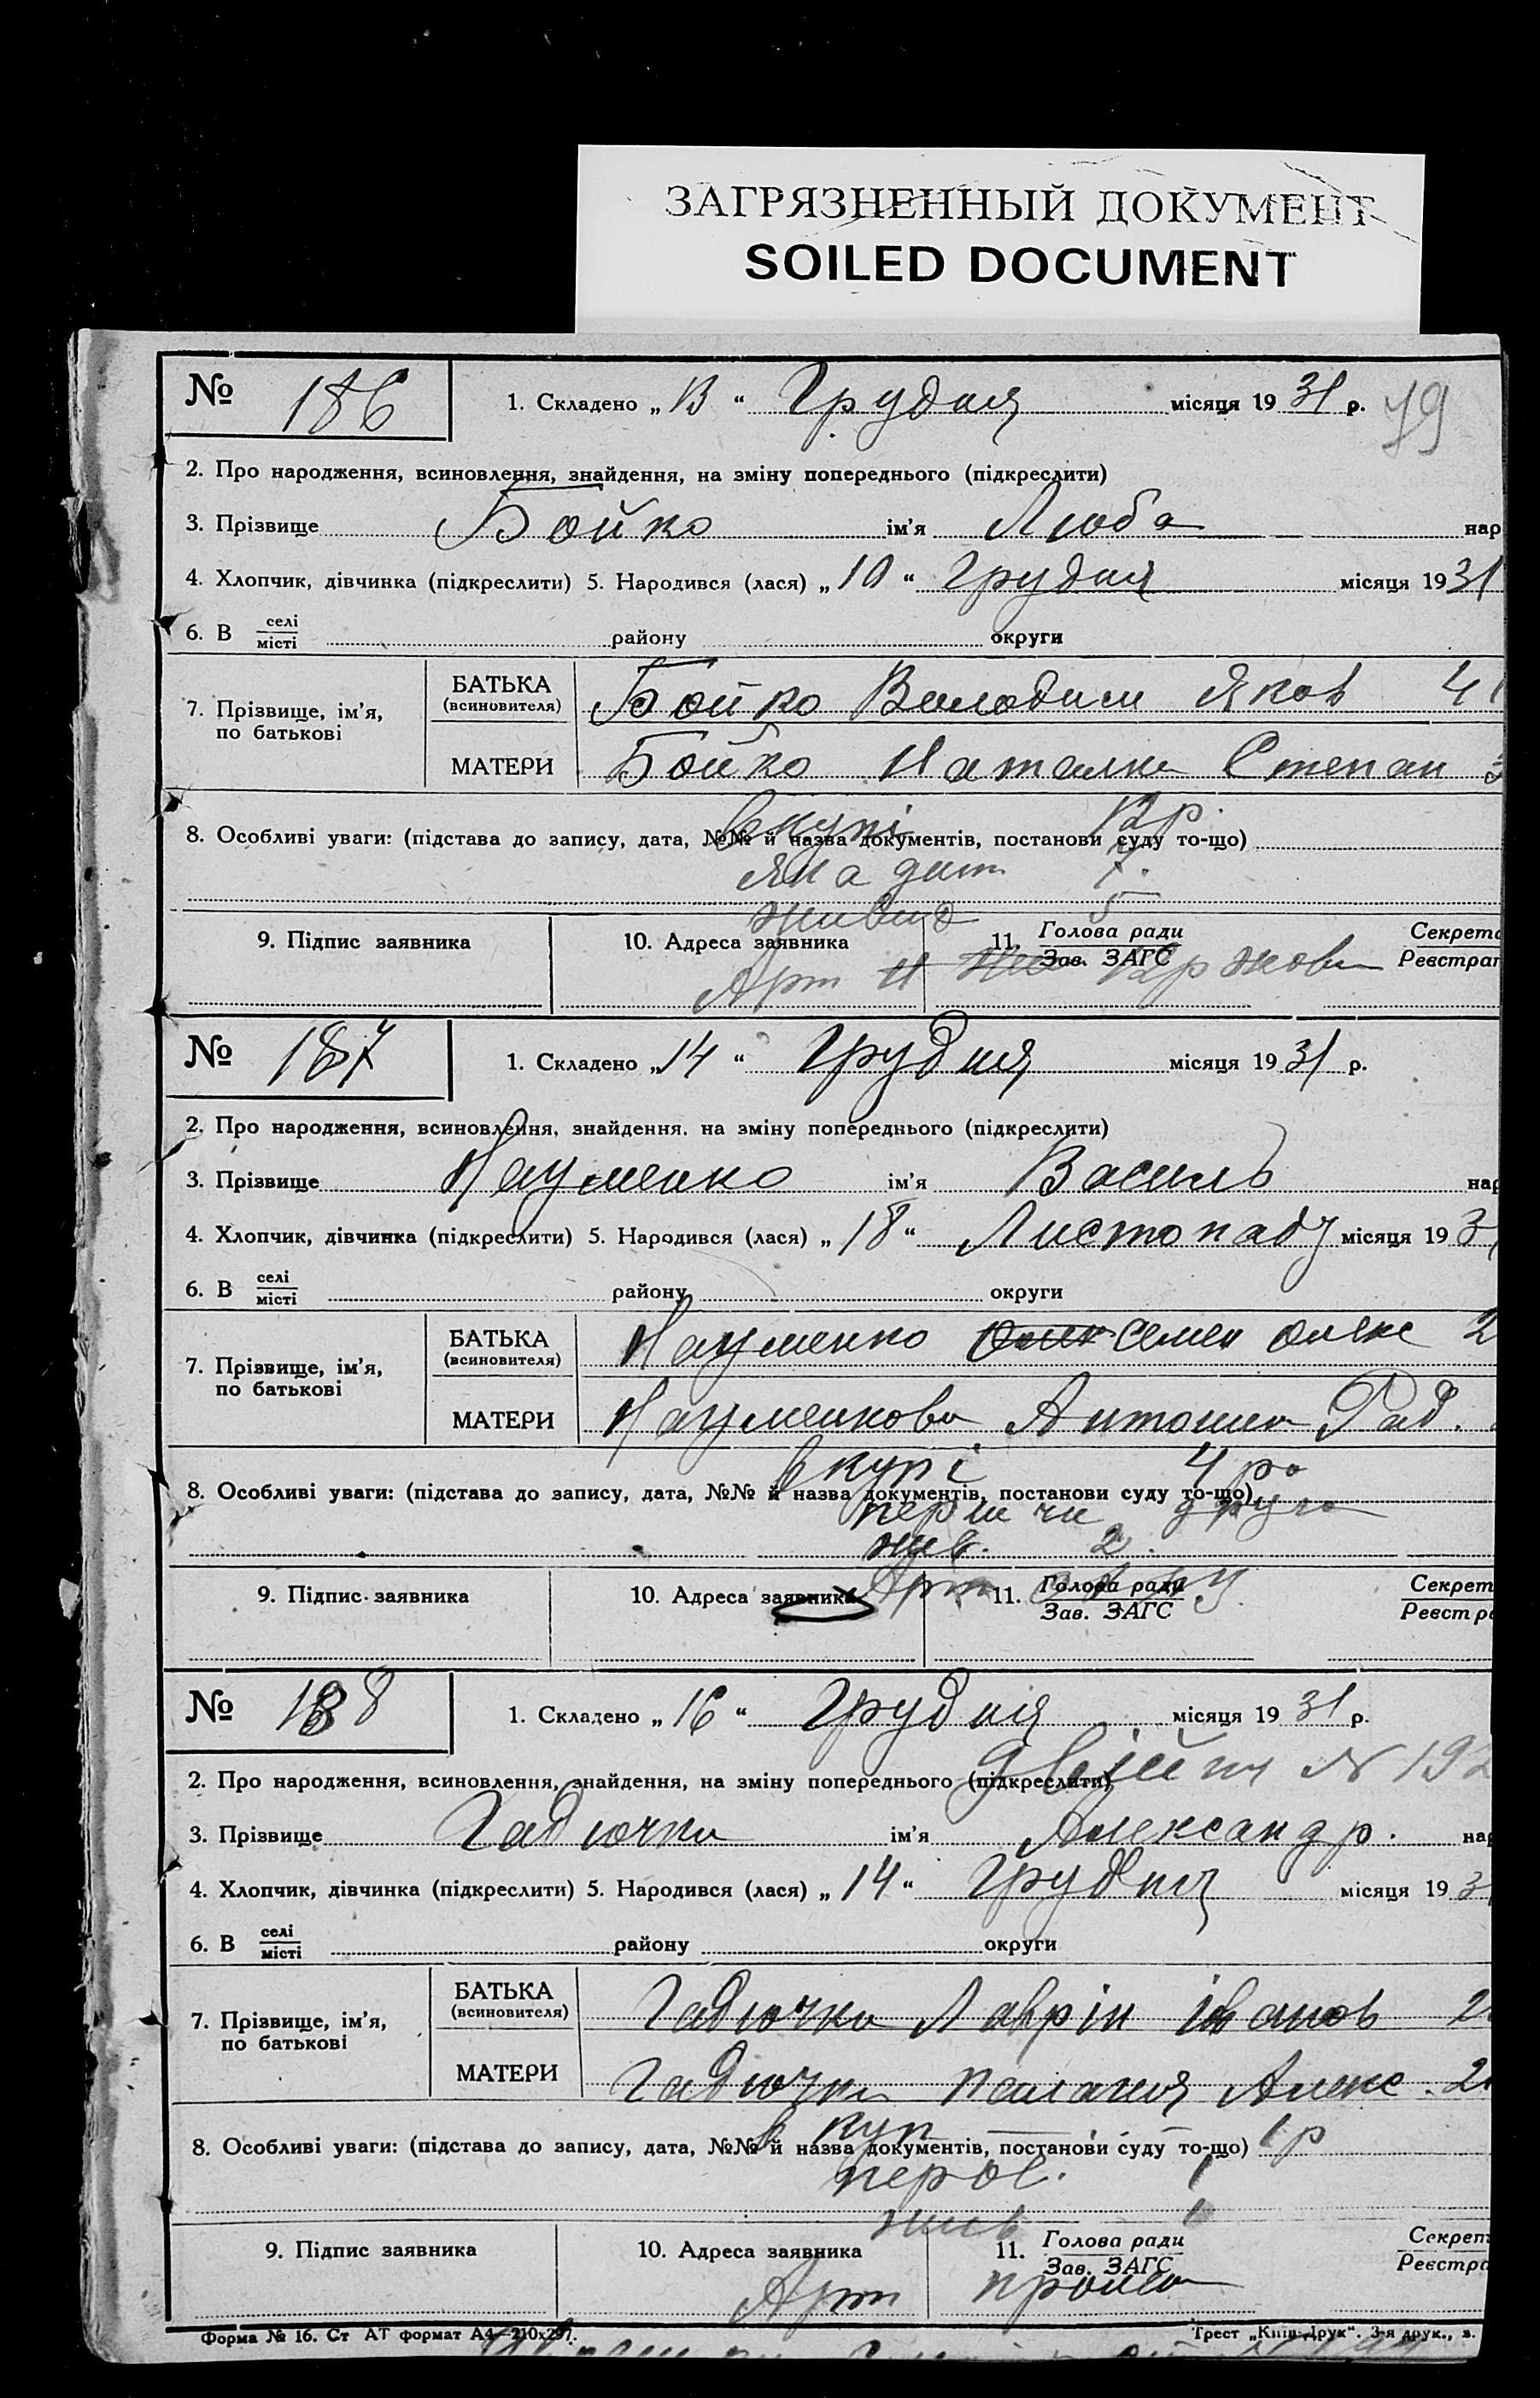 ЗАГРЯЗНЕННЫЙ ДОКУМЕНТ
SOILED DOCUMENT
№ 186 1. Складено „ 13 “ Грудня місяця 19 31 р. 79
2. Про народження, всиновлення, знайдення, на зміну попереднього (підкреслити)
3. Прізвище Бойко ім'я Люба нар
4. Хлопчик, дівчинка (підкреслити) 5. Народився (лася) „ 10 “ Грудня місяця 19 31
6. В селі місті району округи
7. Прізвище, ім'я, по батькові
БАТЬКА (всиновителя) Бойко Володим Яков 41
МАТЕРИ Бойко Наталка Степан 3
вкупі 12 р.
8. Особливі уваги: (підстава до запису, дата, №№ й назва документів, постанови суду то-що)
яка дит 7.
живих 5
9. Підпис заявника 10. Адреса заявника 11. Голова ради Зав. ЗАГС Секрета Реєстрат
Арт
№ 187 1. Складено „ 14 “ Грудня місяця 19 31 р.
2. Про народження, всиновлення, знайдення, на зміну попереднього (підкреслити)
3. Прізвище Науменко ім'я Василь нар
4. Хлопчик, дівчинка (підкреслити) 5. Народився (лася) „ 18 “ Листопаду місяця 19 31
6. В селі місті району округи
7. Прізвище, ім'я, по батькові
БАТЬКА (всиновителя) Науменко Семен Олекс 2
МАТЕРИ Науменкова Антонина Рад.
вкупі 4 ро
8. Особливі уваги: (підстава до запису, дата, №№ й назва документів, постанови суду то-що)
перш чи друга
жив. 2.
9. Підпис заявника 10. Адреса заявника 11. Голова ради Зав. ЗАГС Секрет Реєстра
Арт
№ 188 1. Складено „ 16 “ Грудня місяця 19 31 р.
двійня № 192
2. Про народження, всиновлення, знайдення, на зміну попереднього (підкреслити)
3. Прізвище Гадючка ім'я Александр. нар
4. Хлопчик, дівчинка (підкреслити) 5. Народився (лася) „ 14 “ Грудня місяця 19 3
6. В селі місті району округи
7. Прізвище, ім'я, по батькові
БАТЬКА (всиновителя) Гадючка Лаврін Іванов 2
МАТЕРИ Гадючка Палагия Алекс. 2
в куп 1 р
8. Особливі уваги: (підстава до запису, дата, №№ й назва документів, постанови суду то-що)
жив 1
9. Підпис заявника 10. Адреса заявника 11. Голова ради Зав. ЗАГС Секрет Реєстра
Арт
Форма № 16. Ст АТ формат А4—210х297. Трест „Київ-Друк“. 3-я друк., з.